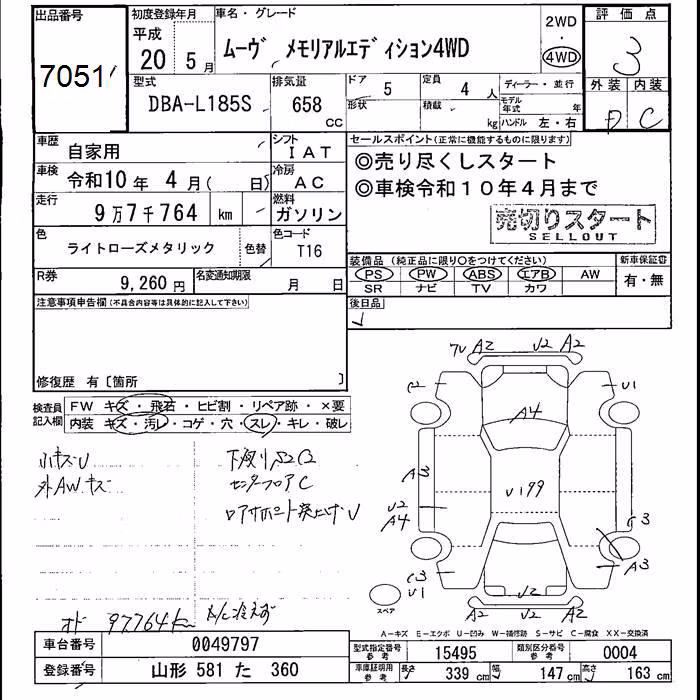 出品番号 初度登録年月 車名・グレード 2WD 評価点
平成 ・
7051 20年 5月 ムーヴ メモリアルエディション4WD 4WD 3
型式 排気量 ドア 5 定員 4人 ディーラー・並行 外装 内装
DBA-L185S 658 CC 形状 積載 kg モデル年式 年 D C
ハンドル 左・右
車歴 自家用 シフト IAT セールスポイント(正常に機能するものに限ります)
車検 令和10年 4月( 日) 冷房 AC ◎売り尽くしスタート
◎車検令和10年4月まで
走行 9万7千764 km 燃料 ガソリン 売切りスタート
SELLOUT
色 ライトローズメタリック 色替 色コード T16
装備品(純正品に限り○をつけてください) 新車保証書
R券 9,260円 名変通知期限 月 日 PS PW ABS エアB AW 有・無
SR ナビ TV カワ
注意事項申告欄(不具合内容等は具体的に記入して下さい) 後日品
修復歴 有〔箇所 〕
検査員記入欄 FW キズ・飛石・ヒビ割・リペア跡・×要
内装 キズ・汚レ・コゲ・穴・スレ・キレ・破レ
小キズU
外AWキズ
センターフロアC
オド 97764km
A2 U2 A2
C2 U1
A4
A3
U199
U2
A4
C3
A3
C3
U1
スペア
U2
A2 U2 A2
A-キズ E-エクボ U-凹み W-補修跡 S-サビ C-腐食 XX-交換済
車台番号 0049797 型式指定番号 参考 15495 類別区分番号 参考 0004
登録番号 山形 581 た 360 車庫証明用 参考 長さ 339 cm 幅 147 cm 高さ 163 cm